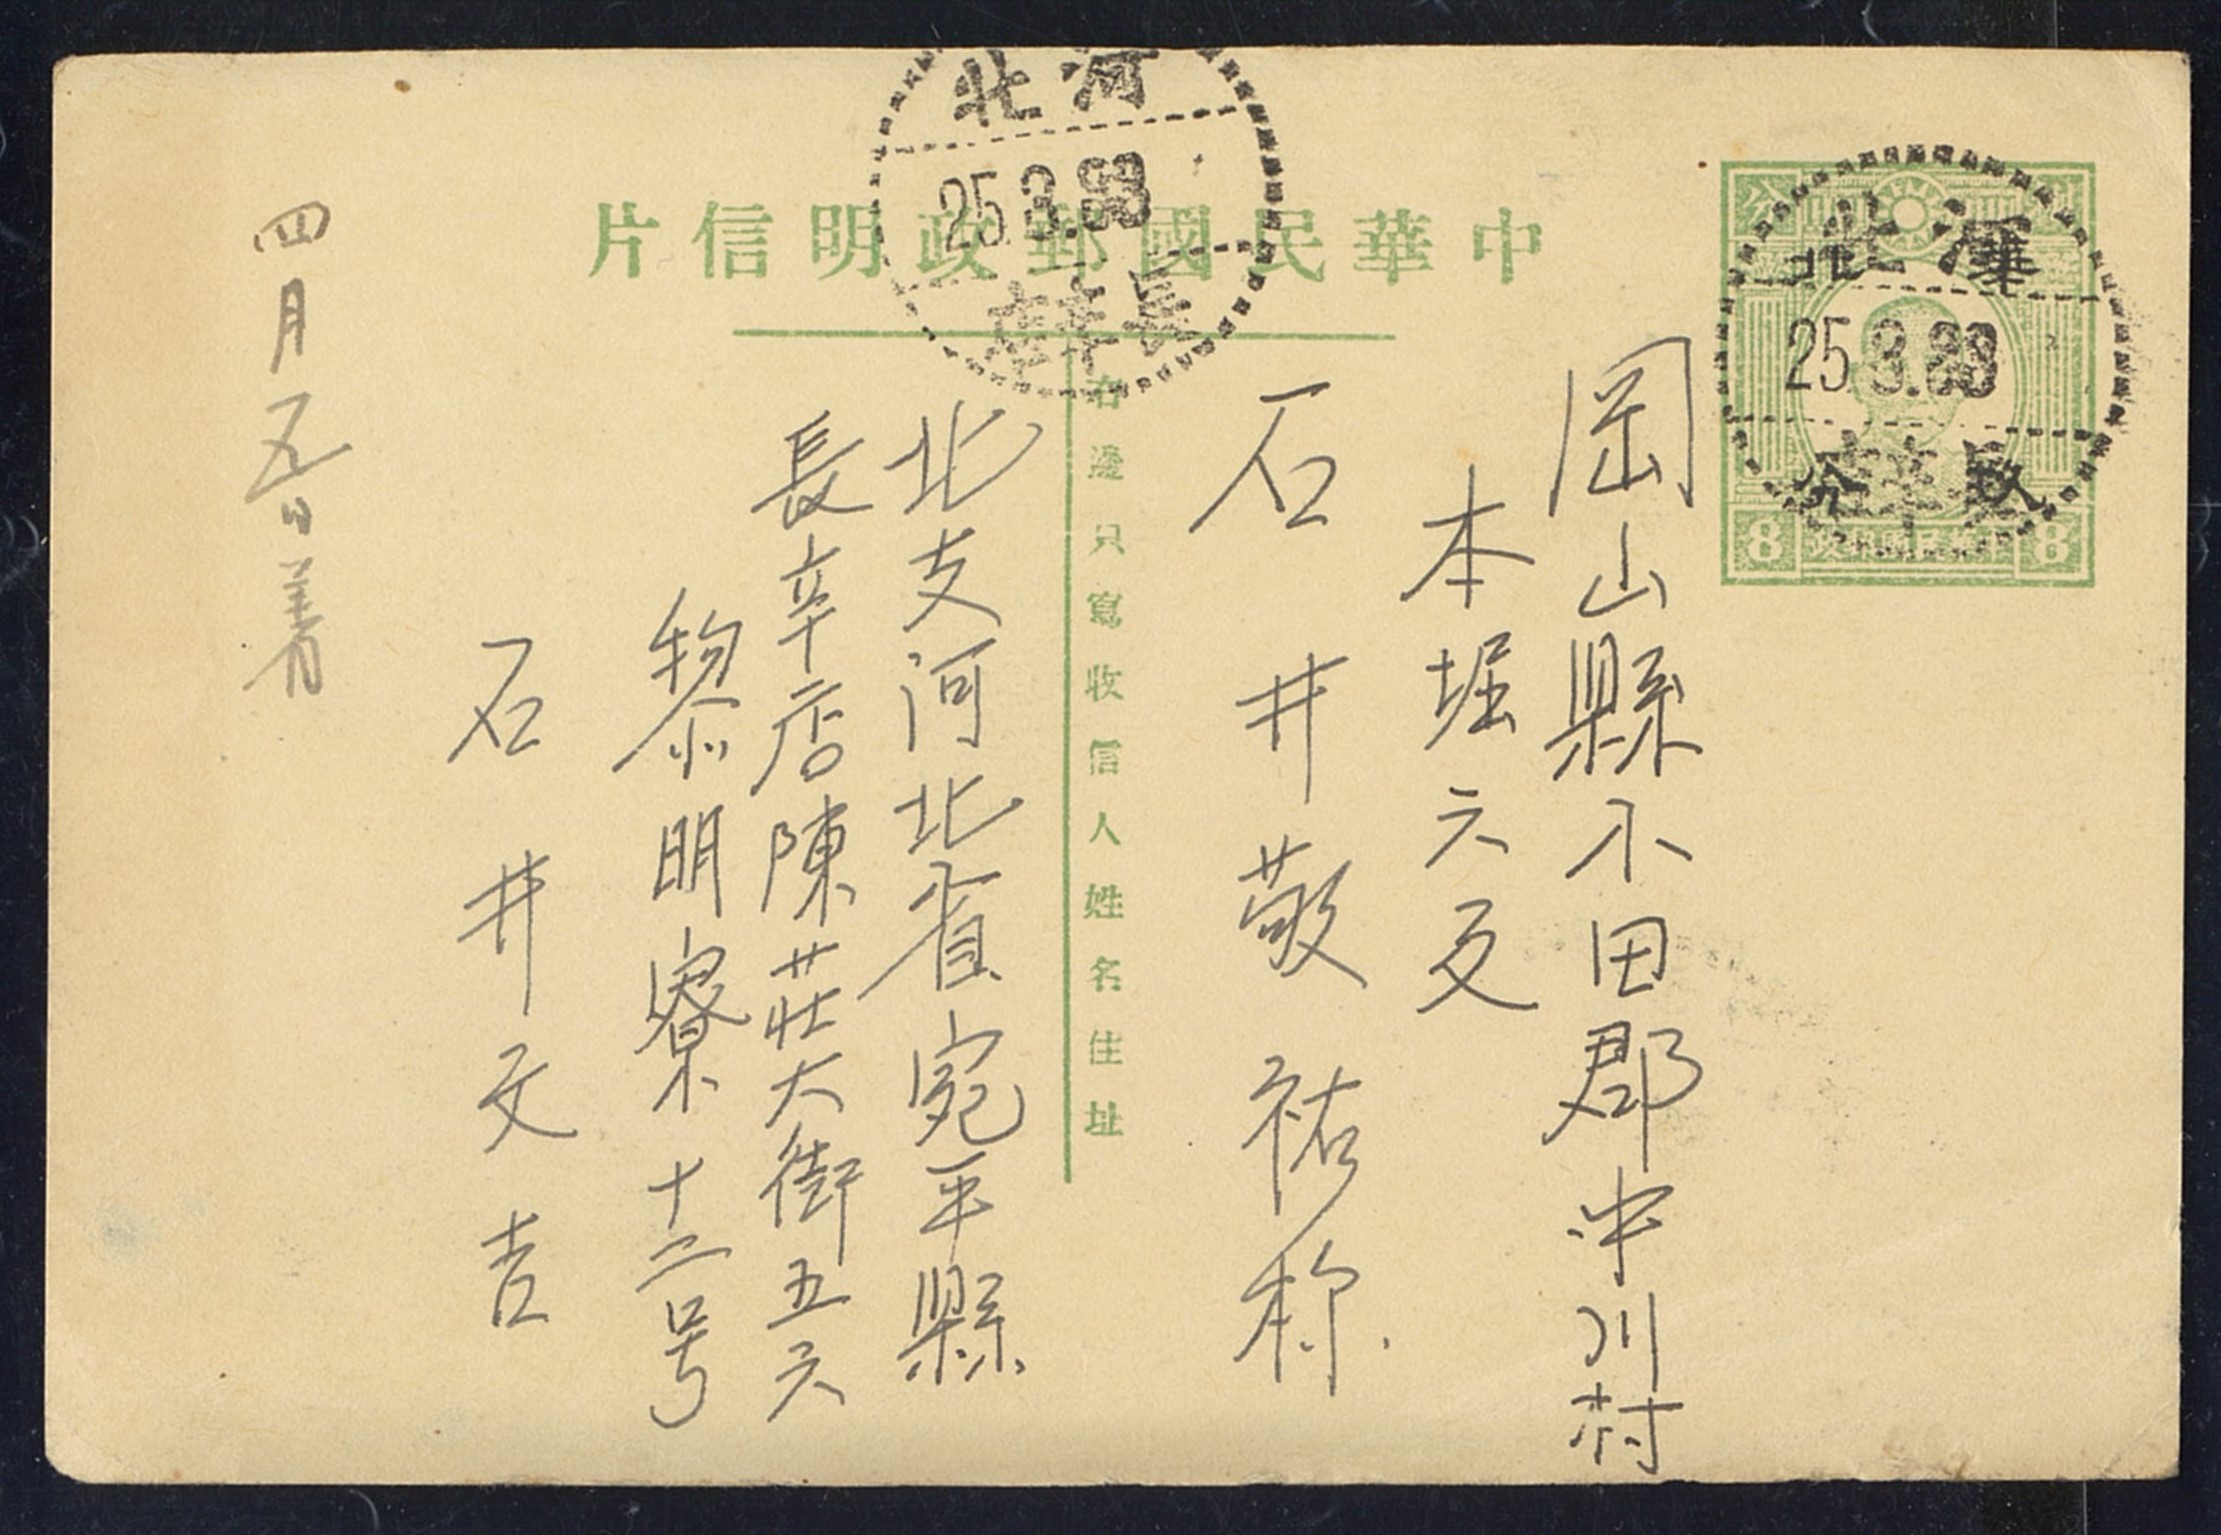 河北
25.3.
長辛店
中華民國郵政明信片
25.3.
8 中華民國郵政 8
右邊只寫收信人姓名住址
岡山縣小田郡中川村
本堀六反
石井敬祐称
北支河北省宛平縣
長辛店陳莊大街五六
黎明寮十二号
石井文吉
四月五日着